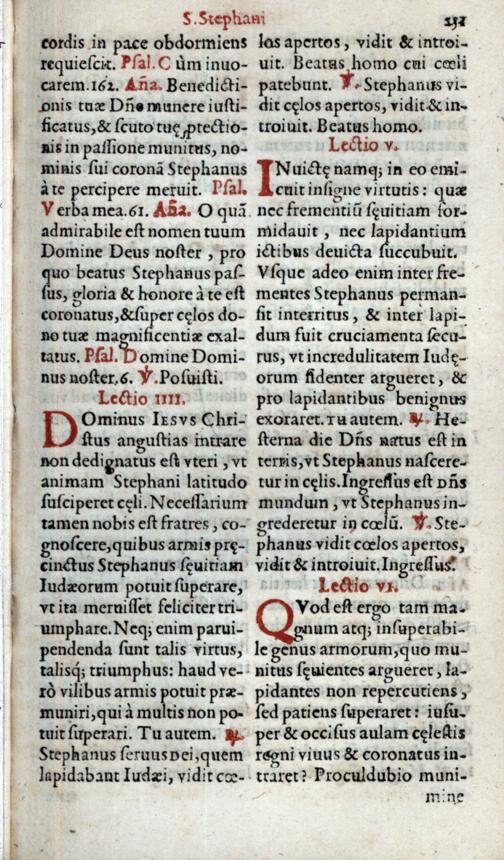 S. Stephani 232
cordis in pace obdormiens
requiescit. Psal. C ùm inuo-
carem. 162. Aña. Benedicti-
onis tuæ Dñe munere iusti-
ficatus, & scuto tuę ꝓtectio-
nis in passione munitus, no-
minis sui coronã Stephanus
à te percipere meruit. Psal.
Verba mea. 61. Aña. O quã
admirabile est nomen tuum
Domine Deus noster, pro
quo beatus Stephanus pas-
sus, gloria & honore à te est
coronatus, & super cęlos do-
no tuæ magnificentiæ exal-
tatus. Psal. Domine Domi-
nus noster. 6. ℣. Posuisti.
Lectio IIII.
DOminus IESVS Chri-
stus angustias intrare
non dedignatus est vteri, vt
animam Stephani latitudo
susciperet cęli. Necessarium
tamen nobis est fratres, co-
gnoscere, quibus armis pręc-
cinctus Stephanus sęuitiam
Iudæorum potuit superare,
vt ita meruisset feliciter tri-
umphare. Neq; enim parui-
pendenda sunt talis virtus,
talisq; triumphus: haud ve-
rò vilibus armis potuit præ-
muniri, qui à multis non po-
tuit superari. Tu autem. ℟.
Stephanus seruus DEI, quem
lapidabant Iudæi, vidit cœ-
los apertos, vidit & introi-
uit. Beatus homo cui cœli
patebunt. ℣. Stephanus vi-
dit cęlos apertos, vidit & in-
troiuit. Beatus homo.
Lectio v.
INuictę namq; in eo emi-
cuit insigne virtutis: quæ
nec frementiũ sęuitiam for-
midauit, nec lapidantium
ictibus deuicta succubuit.
Vsque adeo enim inter fre-
mentes Stephanus perman-
sit interritus, & inter lapi-
dum fuit cruciamenta secu-
rus, vt incredulitatem Iudę-
orum fidenter argueret, &
pro lapidantibus benignus
exoraret. TU autem. ℟. He-
sterna die Dñs natus est in
terris, vt Stephanus nascere-
tur in cęlis. Ingressus est Dñs
mundum, vt Stephanus in-
grederetur in cœlũ. ℣. Ste-
phanus vidit cœlos apertos,
vidit & introiuit. Ingressus.
Lectio VI.
QVod est ergo tam ma-
gnum atq; insuperabi-
le genus armorum, quo mu-
nitus sęuientes argueret, la-
pidantes non repercutiens,
sed patiens superaret: insu-
per & occisus aulam cęlestis
regni viuus & coronatus in-
traret? Proculdubio muni-
mine